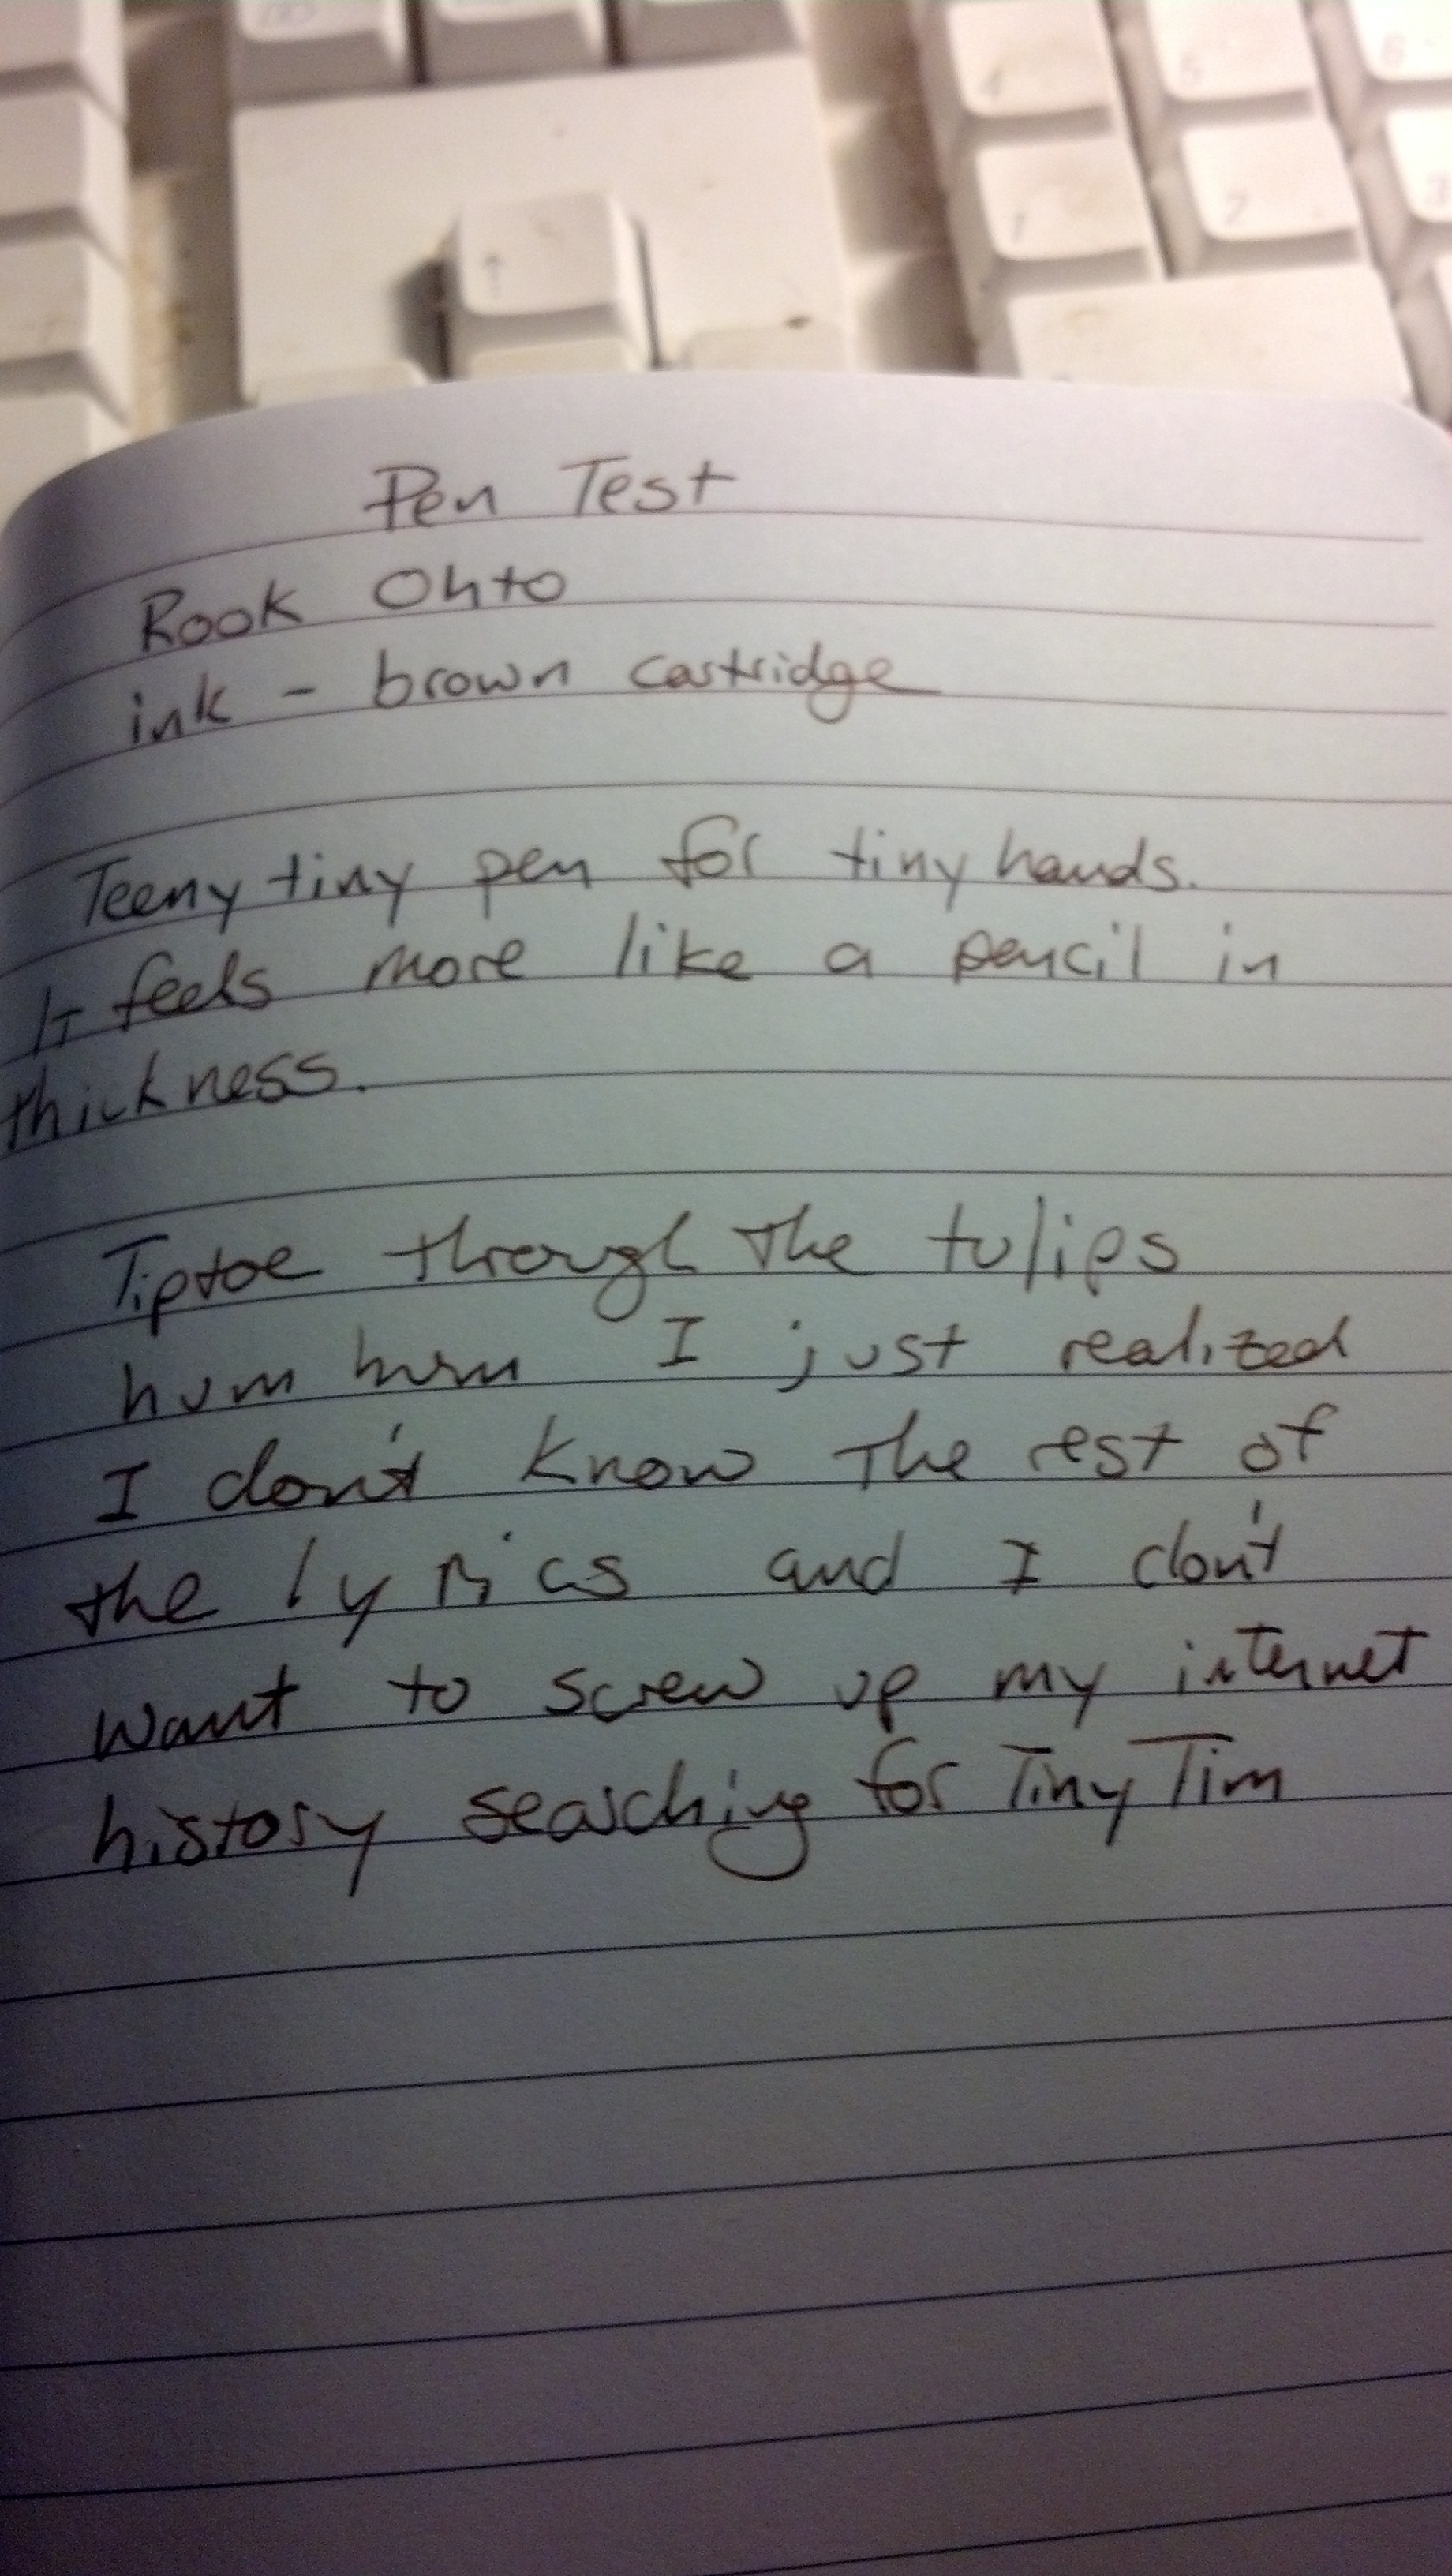 4
5
6
1
2
3
↑
Pen Test
Rook Ohto
ink - brown cartridge
Teeny tiny pen for tiny hands.
It feels more like a pencil in
thickness.
Tiptoe through the tulips
hum hum I just realized
I don't know the rest of
the lyrics and I don't
want to screw up my internet
history searching for Tiny Tim